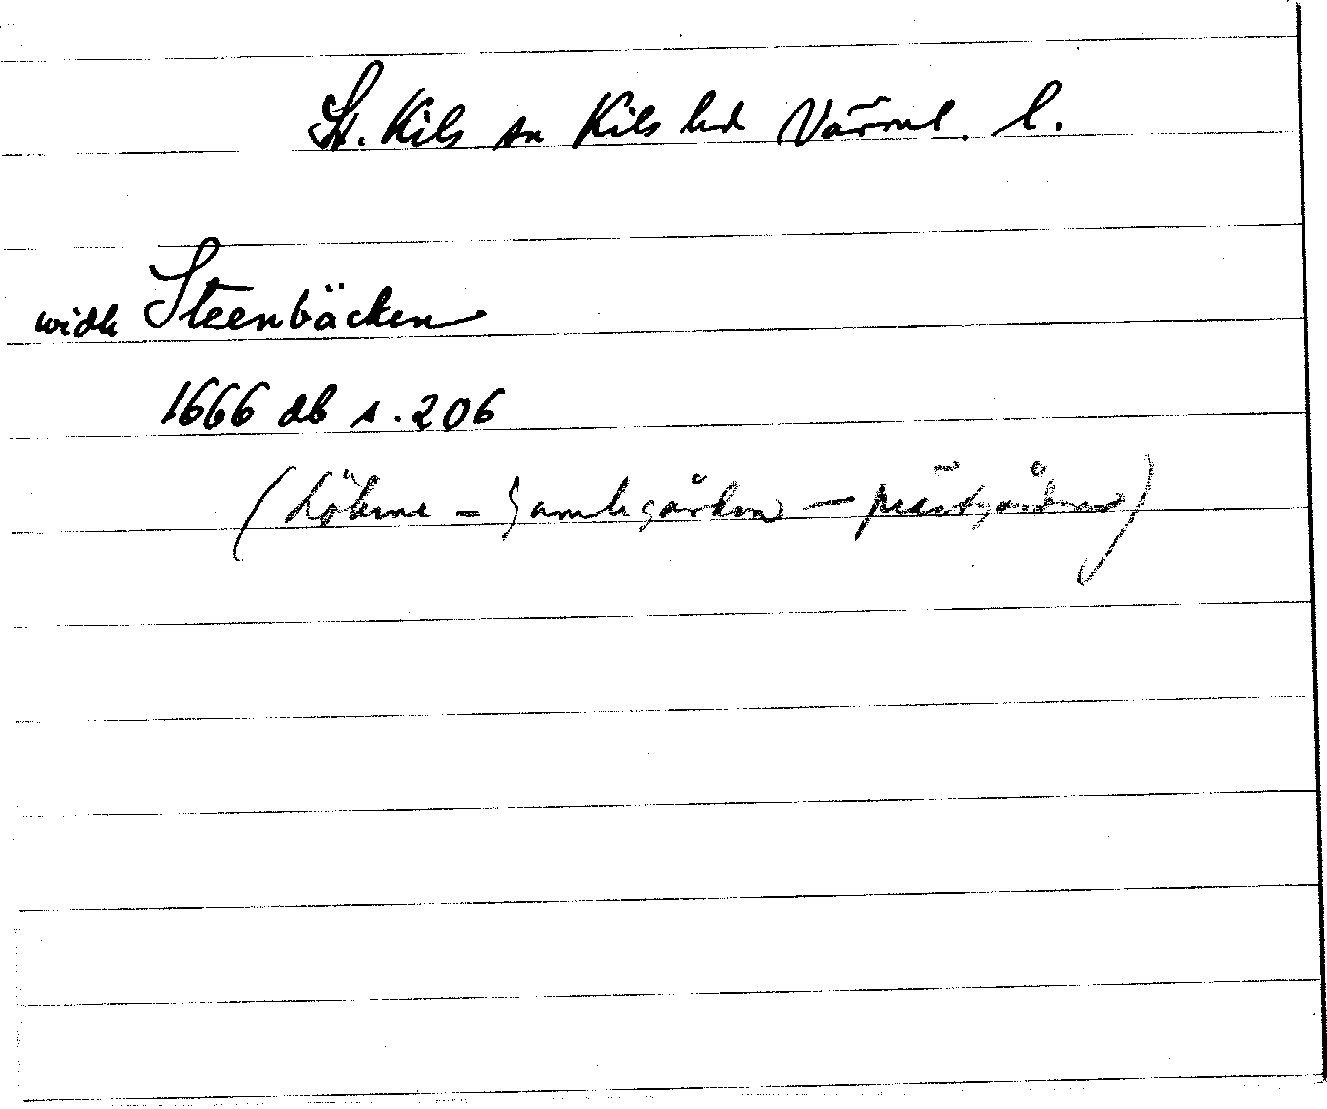 St. Kils sn Kils hd Värml. l.
widh Steenbäcken
1666 db s. 206
( – Gamlegården – prästgården)